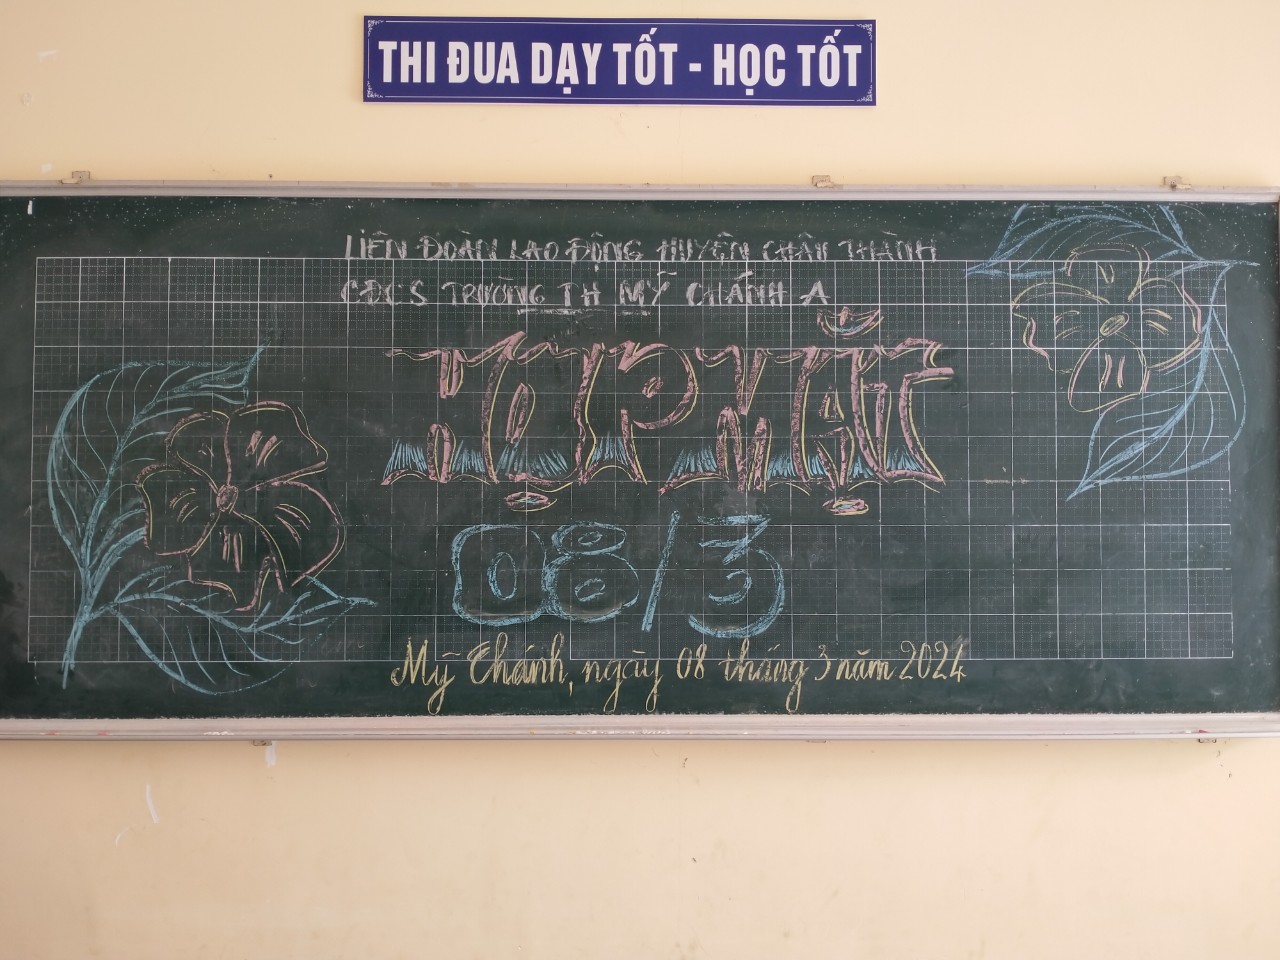 THI ĐUA DẠY TỐT - HỌC TỐT
LIÊN ĐOÀN LAO ĐỘNG HUYỆN CHÂU THÀNH
CĐCS TRƯỜNG TH MỸ CHÁNH A
HỌP MẶT
08/3
Mỹ Chánh, ngày 08 tháng 3 năm 2024